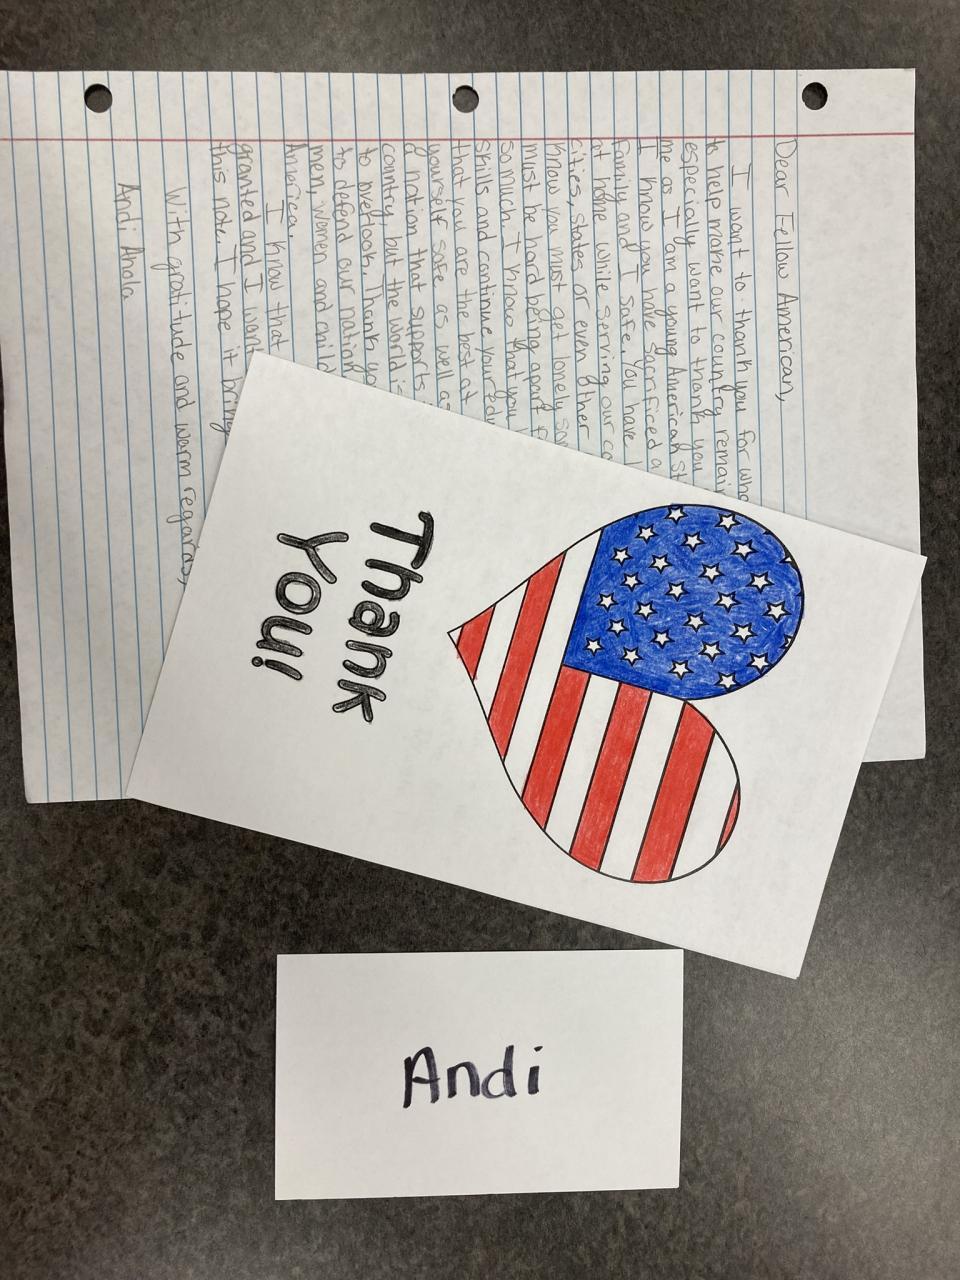 Dear Fellow American,
I want to thank you for
to help make our country remain
especially want to thank you
me as I am a young American
I know you have sacrificed a
family and I safe. You have
at home while serving our
cities, states or even other
know you must get lonely
must be hard being apart
so much. I know that you
skills and continue your
that you are the best at
yourself safe as well as
a nation that supports
country, but the world is
to overlook. Thank
to defend our nation
men, women and
America.
I know that
granted and I want
this note. I hope it
With gratitude and warm regards,
Andi Anola
Thank
You!
Andi